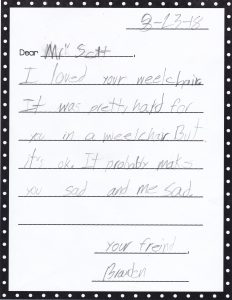 3-23-18
Dear Mr. Scott,
I loved your weelchair.
It was pretty hard for
you in a weelchair But
it's ok. It probubly makes
you sad and me sad.
your freind,
Brandon